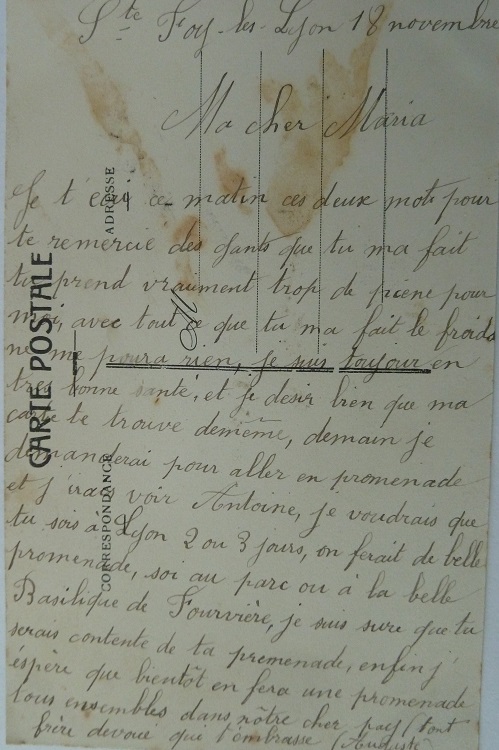 Ste Foy-les-Lyon 18 novembre
Ma cher Maria
Je t'écri ce matin ces deux mots pour
te remercie des gants que tu ma fait
tu prend vraiment trop de piene pour
moi, avec tout ce que tu ma fait le froids
ne me poura rien, je suis toujour en
tres bonne santé, et je desir bien que ma
carte te trouve demême, demain je
demanderai pour aller en promenade
et j'irais voir Antoine, je voudrais que
tu sois à Lyon 2 ou 3 jours, on ferait de belle
promenade, soi au parc ou à la belle
Basilique de Fourvière, je suis sure que tu
serais contente de ta premenade, enfin j'
éspère que bientôt en fera une promenade
tous ensembles dans nôtre cher pays (tont
frère devoué que t'embrasse (Auguste
CARTE POSTALE
CORRESPONDANCE
ADRESSE
M